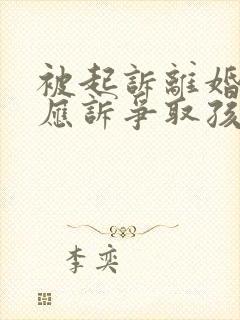 被起訴離婚
應訴爭取孩
李奕